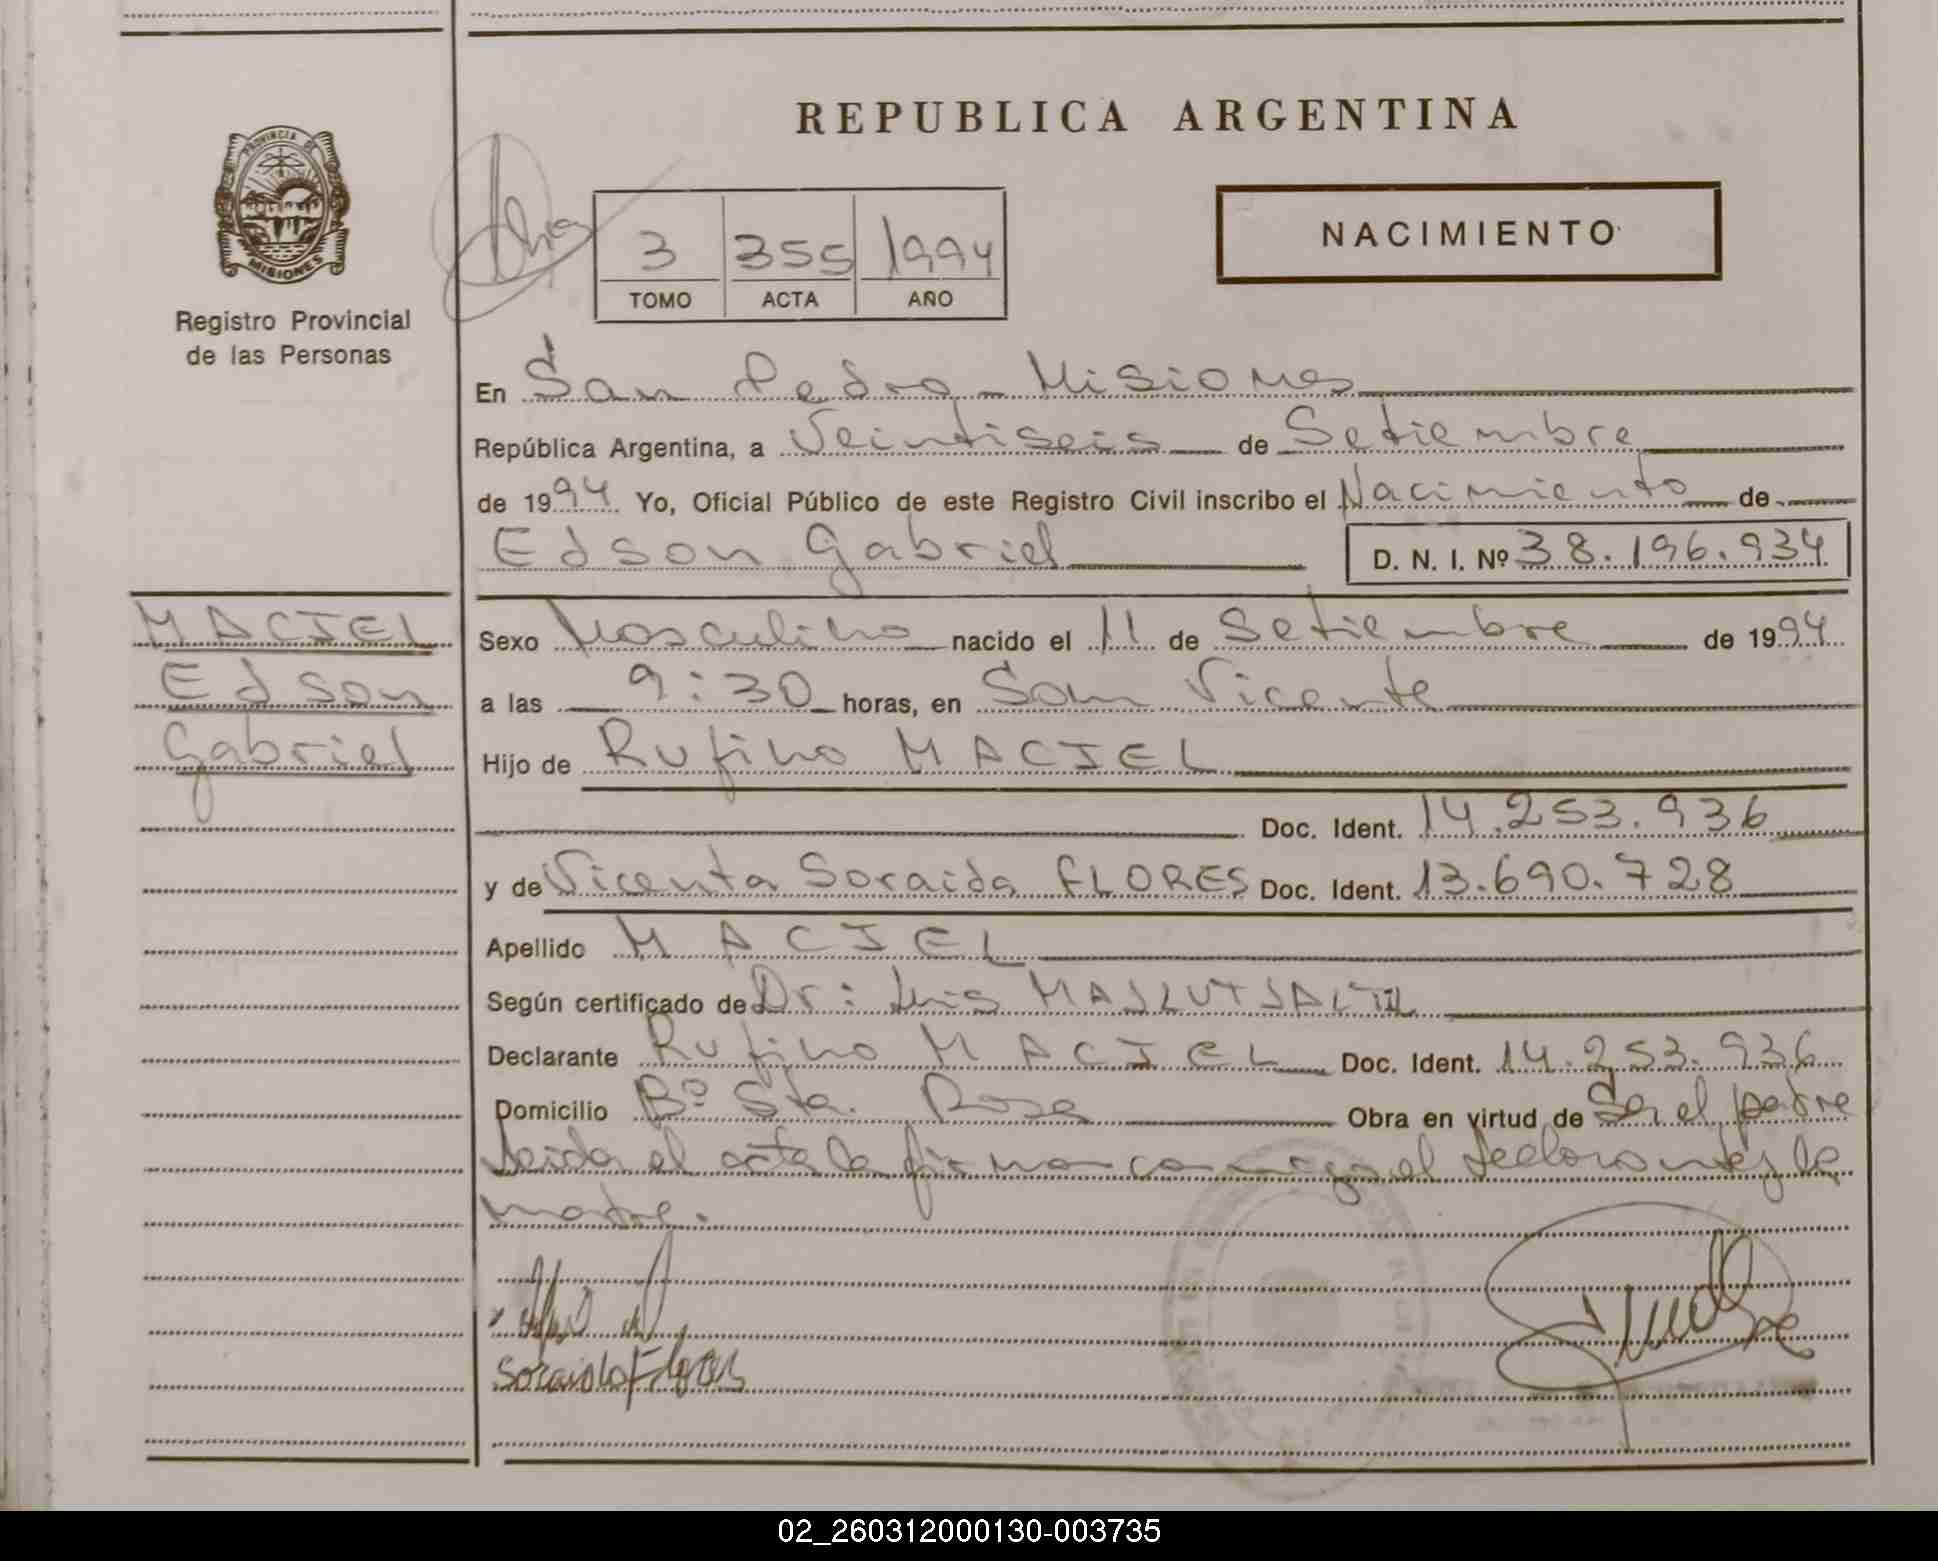 REPUBLICA ARGENTINA
PROVINCIA DE
MISIONES
Registro Provincial
de las Personas
3 355 1994
TOMO ACTA AÑO
NACIMIENTO
En San Pedro - Misiones
República Argentina, a Veintiseis de Setiembre
de 1994 Yo, Oficial Público de este Registro Civil inscribo el Nacimiento de
Edson Gabriel D. N. I. Nº 38.196.934
MACIEL
Edson
Gabriel
Sexo Masculino nacido el 11 de Setiembre de 1994
a las 9:30 horas, en San Vicente
Hijo de Rufino MACIEL
Doc. Ident. 14.253.936
y de Vicenta Soraida FLORES Doc. Ident. 13.690.728
Apellido MACIEL
Según certificado de Dr: Luis
Declarante Rufino MACIEL Doc. Ident. 14.253.936
Domicilio Bº Sta. Rosa Obra en virtud de Ser el padre
Leida el acta la firman conmigo el declarante y la
madre.
Soraida Flores
02_260312000130-003735